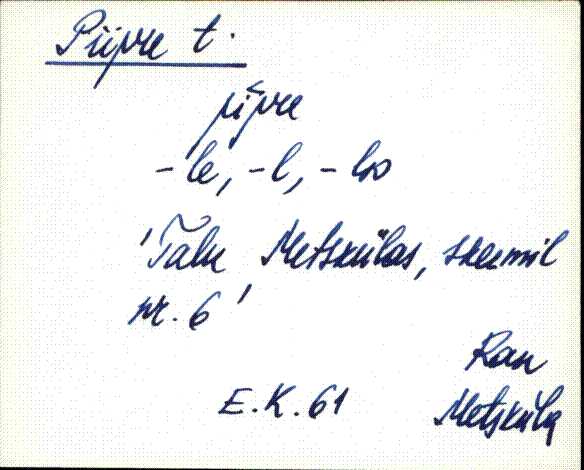 Piipre t.
pi̬i̬pre
-le, -l,
'Talu Metskülas, skeemil
nr. 6'
Ran
E.K. 61 Metsküla